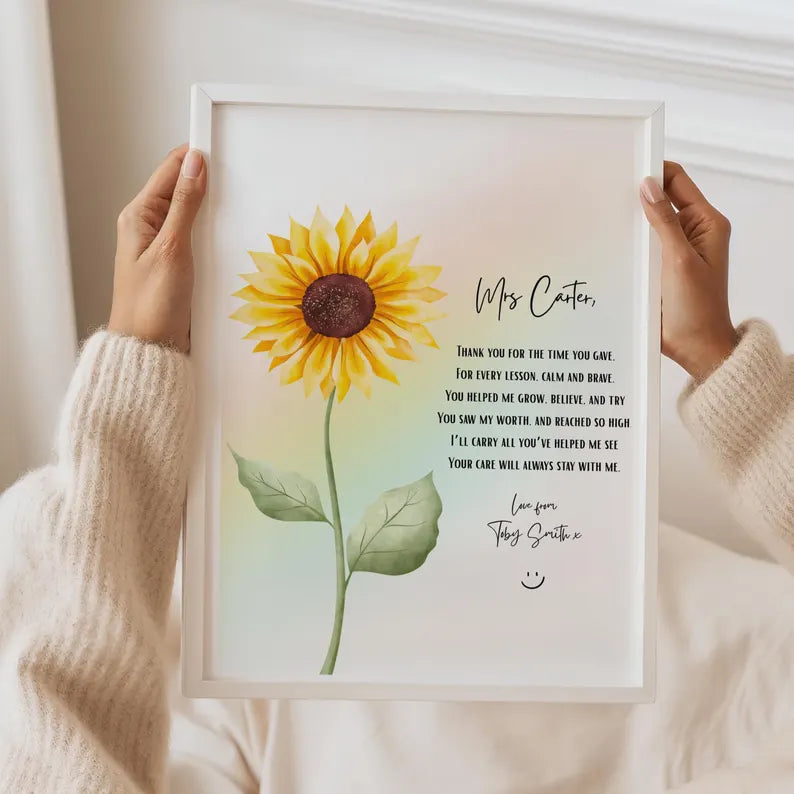 Mrs Carter,
Thank you for the time you gave.
For every lesson, calm and brave.
You helped me grow, believe, and try
You saw my worth, and reached so high
I'll carry all you've helped me see
Your care will always stay with me.
Love from
Toby Smith x